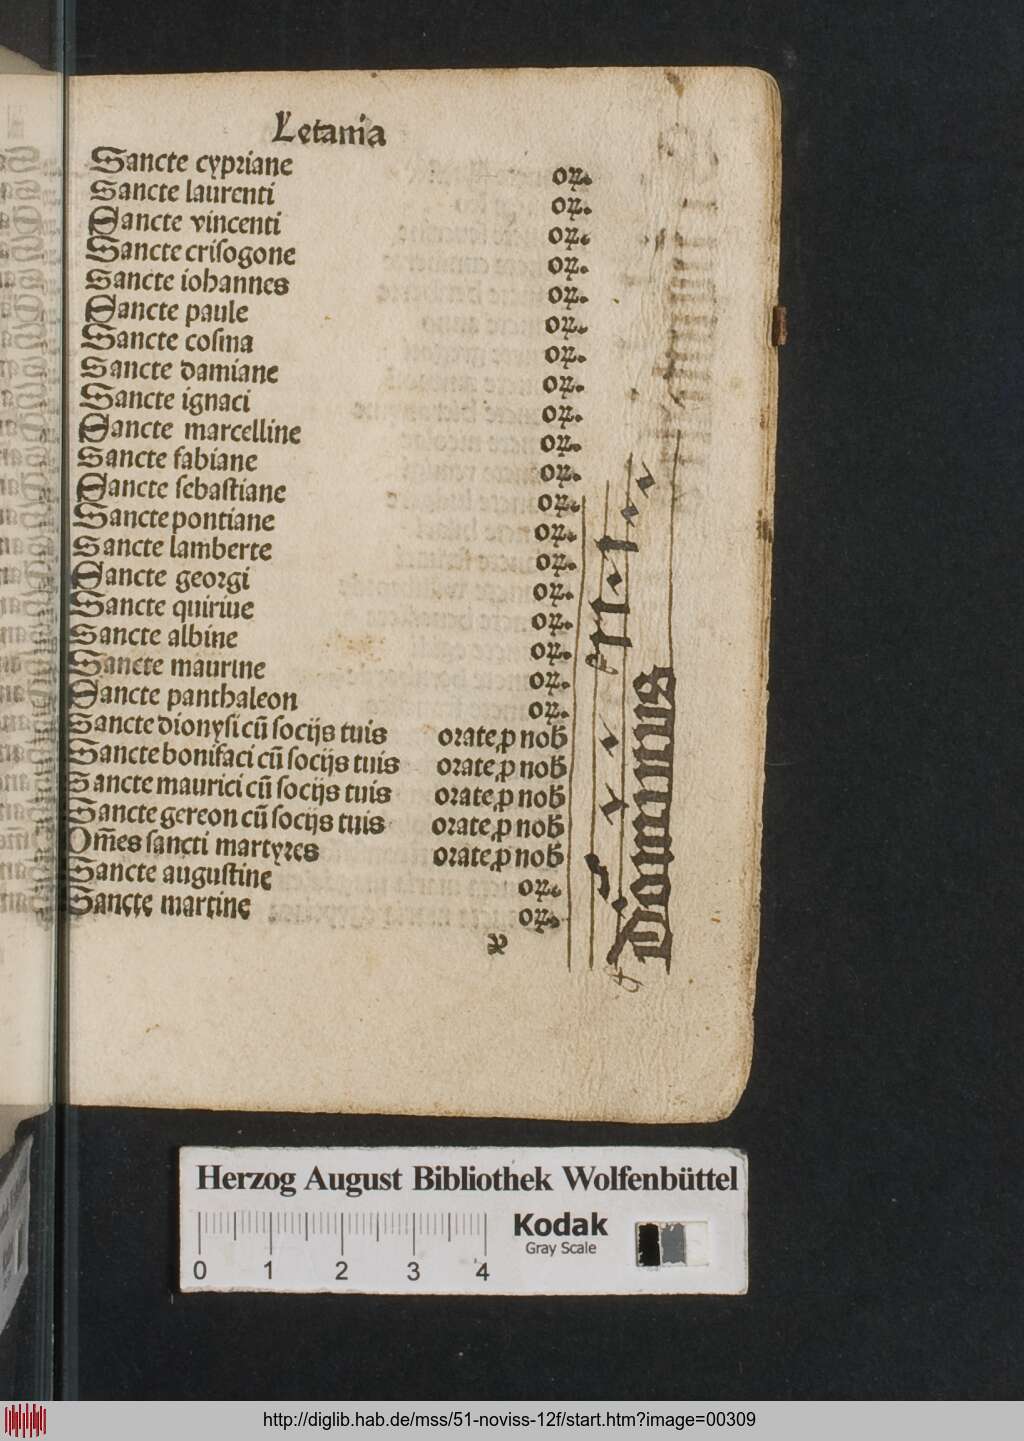 Letania
Sancte cypriane oꝝ.
Sancte laurenti oꝝ.
Sancte vincenti oꝝ.
Sancte criſogone oꝝ.
Sancte iohannes oꝝ.
Sancte paule oꝝ.
Sancte coſma oꝝ.
Sancte damiane oꝝ.
Sancte ignaci oꝝ.
Sancte marcelline oꝝ.
Sancte fabiane oꝝ.
Sancte ſebaſtiane oꝝ.
Sancte pontiane oꝝ.
Sancte lamberte oꝝ.
Sancte georgi oꝝ.
Sancte quirine oꝝ.
Sancte albine oꝝ.
Sancte maurine oꝝ.
Sancte panthaleon oꝝ.
Sancte dionyſi cū ſocijs tuis orate ꝓ nob̄
Sancte bonifaci cū ſocijs tuis orate ꝓ nob̄
Sancte maurici cū ſocijs tuis orate ꝓ nob̄
Sancte gereon cū ſocijs tuis orate ꝓ nob̄
Om̄es ſancti martyres orate ꝓ nob̄
Sancte auguſtine oꝝ.
Sancte martine oꝝ.
Dominus
Herzog August Bibliothek Wolfenbüttel
Kodak
Gray Scale
0 1 2 3 4
http://diglib.hab.de/mss/51-noviss-12f/start.htm?image=00309